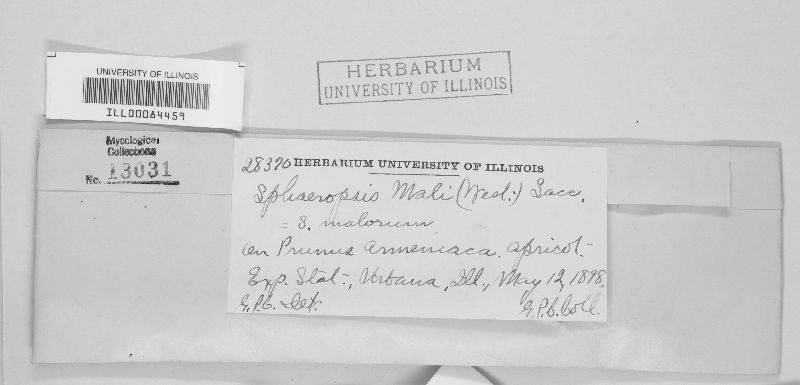 UNIVERSITY OF ILLINOIS
ILL00084459
HERBARIUM
UNIVERSITY OF ILLINOIS
Mycological
Collections
No. 13031
28370 HERBARIUM UNIVERSITY OF ILLINOIS
Sphaeropsis Mali (West.) Sacc.
= S. malorum
On Prunus armeniaca. apricot.
Exp. Stat., Urbana, Ill., May 12, 1898.
G.P.C. Det. G.P.C. Coll.